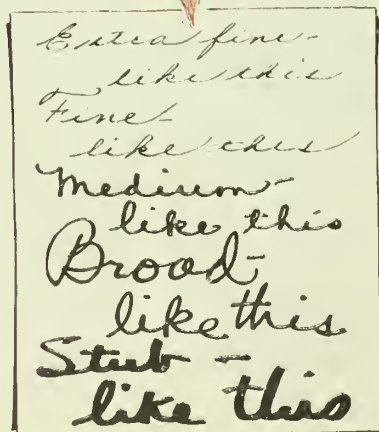 Extra fine-
like this
Fine-
like this
Medium-
like this
Broad-
like this
Stub-
like this